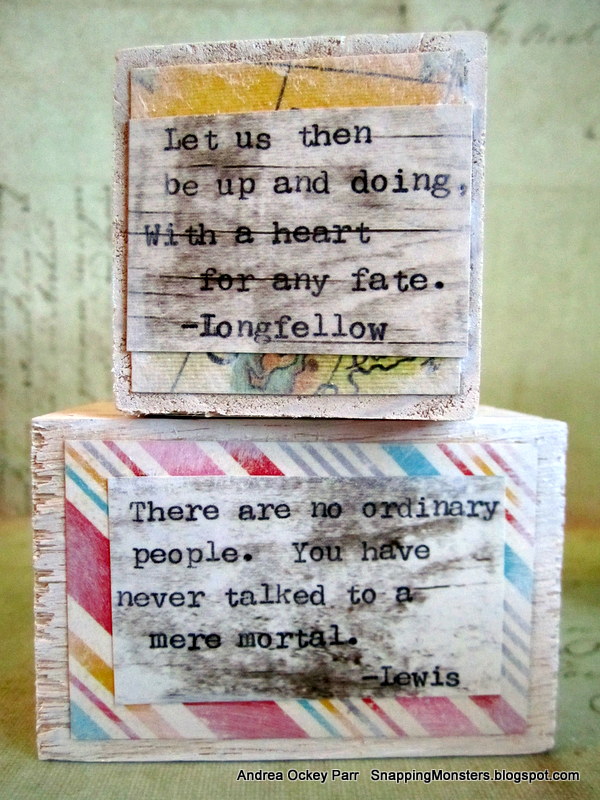 Let us then
be up and doing,
With a heart
for any fate.
-Longfellow
There are no ordinary
people. You have
never talked to a
mere mortal.
-Lewis
Andrea Ockey Parr SnappingMonsters.blogspot.com